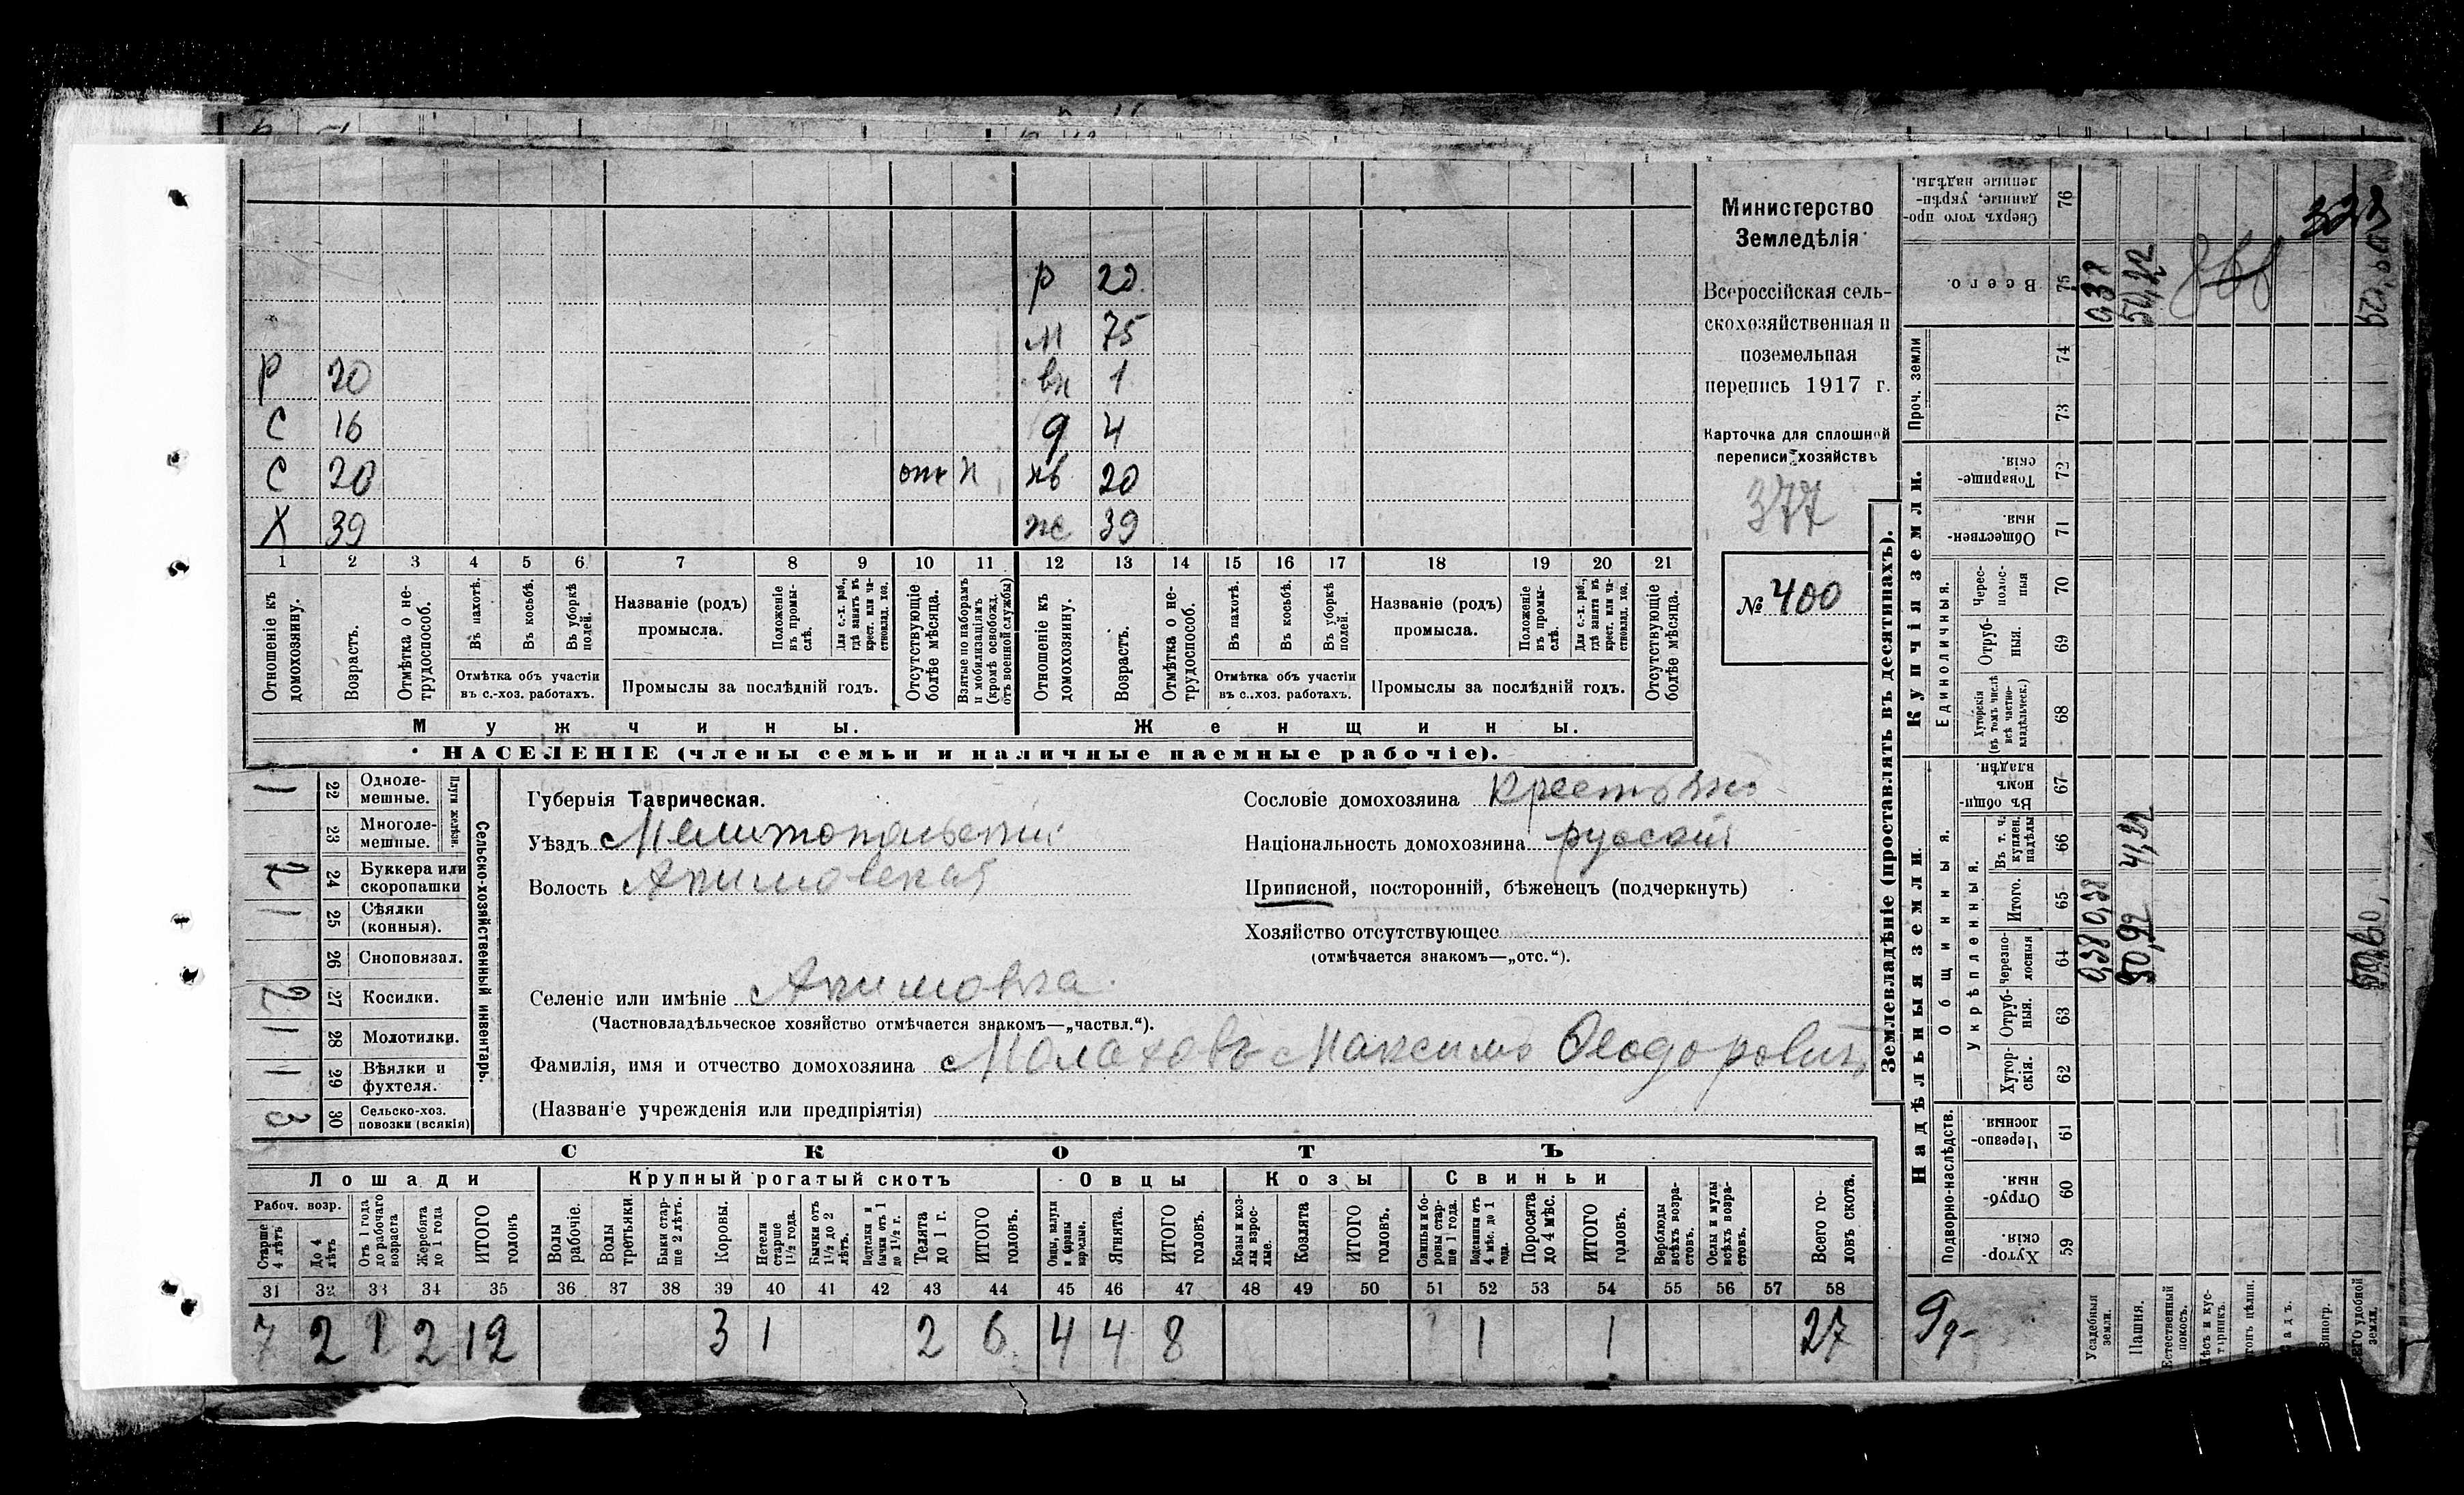 Министерство
Земледѣлія
Всероссійская сель-
скохозяйственная и
поземельная
перепись 1917 г.
Карточка для сплошной
переписи хозяйствъ
377
№ 400
р 20
м 75
Р 20 вн 1
С 16 д 4
С 20 отс н нв 20
Х 39 же 39
1 2 3 4 5 6 7 8 9 10 11 12 13 14 15 16 17 18 19 20 21
Отношеніе къ домохозяину.
Возрастъ.
Отмѣтка о не-трудоспособ.
Въ пахотѣ.
Въ косьбѣ.
Въ уборкѣ полей.
Отмѣтка объ участіи
въ с.-хоз. работахъ.
Названіе (родъ)
промысла.
Положеніе въ промы-слѣ.
Для с.-х. раб., гдѣ занятъ въ крест. или ча-стновлад. хоз.
Промыслы за послѣдній годъ.
Отсутствующіе болѣе мѣсяца.
Взятые по наборамъ и мобилизаціямъ (кромѣ освобожд. отъ военной службы)
Отношеніе къ домохозяину.
Возрастъ.
Отмѣтка о не-трудоспособ.
Въ пахотѣ.
Въ косьбѣ.
Въ уборкѣ полей.
Отмѣтка объ участіи
въ с.-хоз. работахъ.
Названіе (родъ)
промысла.
Положеніе въ промы-слѣ.
Для с.-х. раб., гдѣ занята въ крест. или ча-стновлад. хоз.
Промыслы за послѣдній годъ.
Отсутствующіе болѣе мѣсяца.
Мужчины. Женщины.
НАСЕЛЕНІЕ (члены семьи и наличные наемные рабочіе).
1 22 Одноле-мешные.
23 Многоле-мешные.
Плуги желѣзн.
2 24 Буккера или скоропашки
1 25 Сѣялки (конныя).
26 Сноповязал.
2 27 Косилки.
1 28 Молотилки.
1 29 Вѣялки и фухтеля.
3 30 Сельско-хоз. повозки (всякія)
Сельско-хозяйственный инвентарь.
Губернія Таврическая.
Уѣздъ Мелитопольскій
Волость Акимовская
Сословіе домохозяина Крестьян
Національность домохозяина русскій
Приписной, посторонній, бѣженецъ (подчеркнуть)
Хозяйство отсутствующее
(отмѣчается знакомъ—„отс.“).
Селеніе или имѣніе Акимовка
(Частновладѣльческое хозяйство отмѣчается знакомъ—„частвл.“).
Фамилія, имя и отчество домохозяина Малаховъ Максимъ Ѳеодоровичъ
(Названіе учрежденія или предпріятія)
СКОТЪ
Лошади Крупный рогатый скотъ Овцы Козы Свиньи
Рабоч. возр.
Старше 4 лѣтъ
До 4 лѣтъ
Отъ 1 года до рабочаго возраста
Жеребята до 1 года
ИТОГО головъ
Волы рабочіе.
Волы третьяки.
Быки стар-ше 2 лѣтъ.
Коровы.
Нетели старше 1½ года.
Бычки отъ 1½ до 2 лѣтъ.
Подтелки и бычки отъ 1 до 1½ г.
Телята до 1 г.
ИТОГО головъ.
Овцы, валухи и бараны взрослые.
Ягнята.
ИТОГО головъ.
Козы и коз-лы взрос-лые.
Козлята
ИТОГО головъ.
Свиньи и бо-ровы стар-ше 1 года.
Подсвинки отъ 4 мѣс. до 1 года.
Поросята до 4 мѣс.
ИТОГО головъ.
Верблюды всѣхъ возра-стовъ.
Ослы и мулы всѣхъ возра-стовъ.
Всего го-ловъ скота.
31 32 33 34 35 36 37 38 39 40 41 42 43 44 45 46 47 48 49 50 51 52 53 54 55 56 57 58
7 2 1 2 12 3 1 2 6 4 4 8 1 1 27
Землевладѣніе (проставлять въ десятинахъ).
Купчія земли.
Надѣльныя земли.
Сверхъ того про-данные, укрѣп-ленные надѣлы. 76
Всего. 75 0,38 50,22
Проч. земли 74 73
Товарище-скія. 72
Обществен-ныя. 71
Единоличныя.
Черес-полос-ныя 70
Отруб-ныя. 69
Хуторскія (въ томъ числѣ всѣ частно-владѣльческ.) 68
Общинныя.
Въ общи-номъ владѣн. 67
Укрѣпленныя.
Въ т. ч. куплен. надѣлы 66 41,21
Итого. 65 0,38
Черезпо-лосныя 64 0,38
Отруб-ныя. 63
Хутор-скія. 62
Подворно-наслѣдств.
Черезпо-лосныя. 61
Отруб-ныя. 60
Хутор-скія. 59
Усадебныя земли.
Пашня.
Естественный покосъ.
50,60